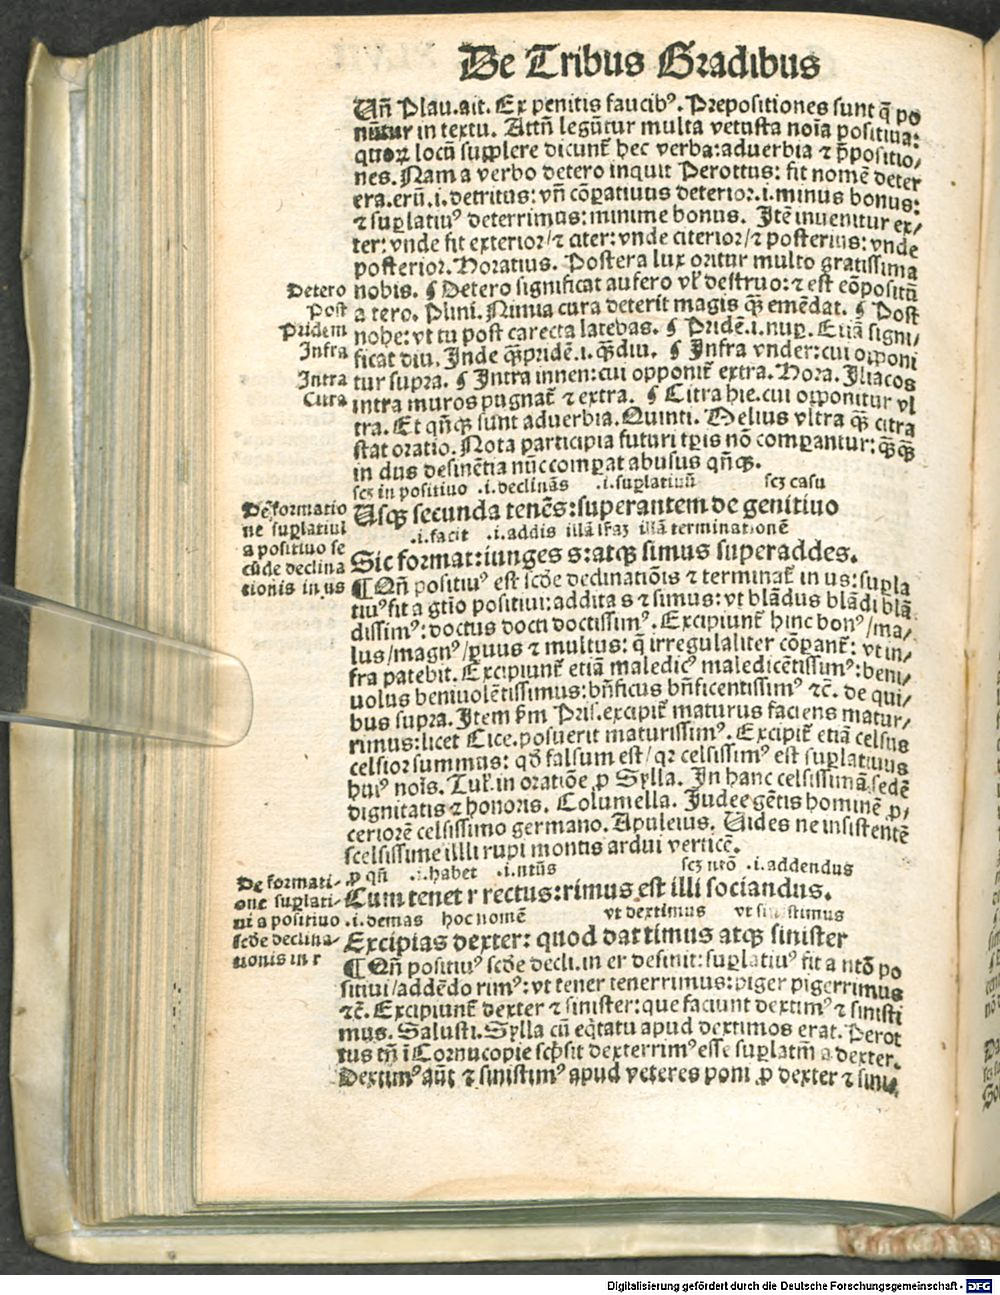 De Tribus Gradibus
Uñ Plau.ait. Ex penitis faucibꝰ. Prepositiones sunt q̄ po
nūtur in textu. Attñ legūtur multa vetusta noīa positiua:
quoꝝ locū supplere dicunt̄ hec verba:aduerbia ⁊ p̄positio/
nes. Nam a verbo detero inquit Perottus: fit nomē deter
era.erū.i.detritus: vñ cōpatiuus deterior.i.minus bonus:
⁊ suplatiuꝰ deterrimus:minime bonus. Itē inuenitur ex/
ter: vnde fit exterior/⁊ citer: vnde citerior/⁊ posterius: vnde
posterior. Horatius. Postera lux oritur multo gratissima
Detero nobis. ¶ Detero significat aufero vl̄ destruo:⁊ est cōpositū
Post a tero. Plini. Nimia cura deterit magis q̄ꝫ emēdat. ¶ Post
Pridem nohe: vt tu post carecta latebas. ¶ Pridē.i.nuꝑ. Etiā signi/
Infra ficat diu. Inde q̄ꝫpridē.i.q̄ꝫdiu. ¶ Infra vnder:cui opponi
Intra tur supra. ¶ Intra innen:cui opponit̄ extra. Hora. Iliacos
Citra intra muros pugnat̄ ⁊ extra. ¶ Citra hie.cui opponitur vl
tra. Et qñqꝫ sunt aduerbia. Quinti. Melius vltra q̄ꝫ citra
stat oratio. Nota participia futuri tꝑis nō comꝑantur: q̄ꝫq̄ꝫ
in dus desinētia nūc comꝑat abusus qñqꝫ.
scꝫ in positiuo .i.declinās .i.suꝑlatiuū scꝫ casu
De formatio Usqꝫ secunda tenēs:superantem de genitiuo
ne suꝑlatiui .i.facit .i.addis illā lr̄aꝫ illā terminationē
a positiuo se Sic format:iunges s:atqꝫ simus superaddes.
cūde declina ¶ Qñ positiuꝰ est scd̄e declinatiōis ⁊ terminat̄ in us:supla
tionis in us tiuꝰ fit a gtio positiui:addita s ⁊ simus: vt blādus blādi blā
dissimꝰ: doctus docti doctissimꝰ. Excipiunt̄ hinc bonꝰ/ma/
lus/magnꝰ/ꝑuus ⁊ multus: q̄ irregulaliter cōꝑant̄: vt in/
fra patebit. Excipiunt̄ etiā maledicꝰ maledicētissimꝰ:beni/
uolus beniuolētissimus:bñficus bñficentissimꝰ ⁊c̄. de qui/
bus supra. Item ẜm Pris.excipit̄ maturus faciens matur/
rimus:licet Cice.posuerit maturissimꝰ. Excipit̄ etiā celsus
celsior summus: qd̄ falsum est/qꝛ celsissimꝰ est suꝑlatiuus
huiꝰ nois. Tul̄.in oratiōe ꝓ Sylla. In hanc celsissimā sedē
dignitatis ⁊ honoris. Columella. Iudee gētis hominē ꝓ/
ceriorē celsissimo germano. Apuleius. Uides ne insistentē
scelsissime illli rupi montis ardui verticē.
ꝓ qñ .i.habet .i.ntūs scꝫ ntō .i.addendus
De formati- Cum tenet r rectus:rimus est illi sociandus.
one suꝑlati- .i.demas hoc nomē vt dextimus vt sinistimus
ui a positiuo Excipias dexter: quod dat timus atqꝫ sinister
scd̄e declina- ¶ Qñ positiuꝰ scd̄e decli.in er desinit:suꝑlatiuꝰ fit a ntō po
tionis in r sitiui/addēdo rimꝰ: vt tener tenerrimus:piger pigerrimus
⁊c̄. Excipiunt̄ dexter ⁊ sinister: que faciunt dextimꝰ ⁊ sinisti
mus. Salusti. Sylla cū eq̄tatu apud dextimos erat. Perot
tus tñ ī Cornucopie scp̄sit dexterrimꝰ esse suꝑlatm̄ a dexter.
Dextimꝰ aūt ⁊ sinistimꝰ apud veteres poni ꝓ dexter ⁊ sini/
Digitalisierung gefördert durch die Deutsche Forschungsgemeinschaft - DFG